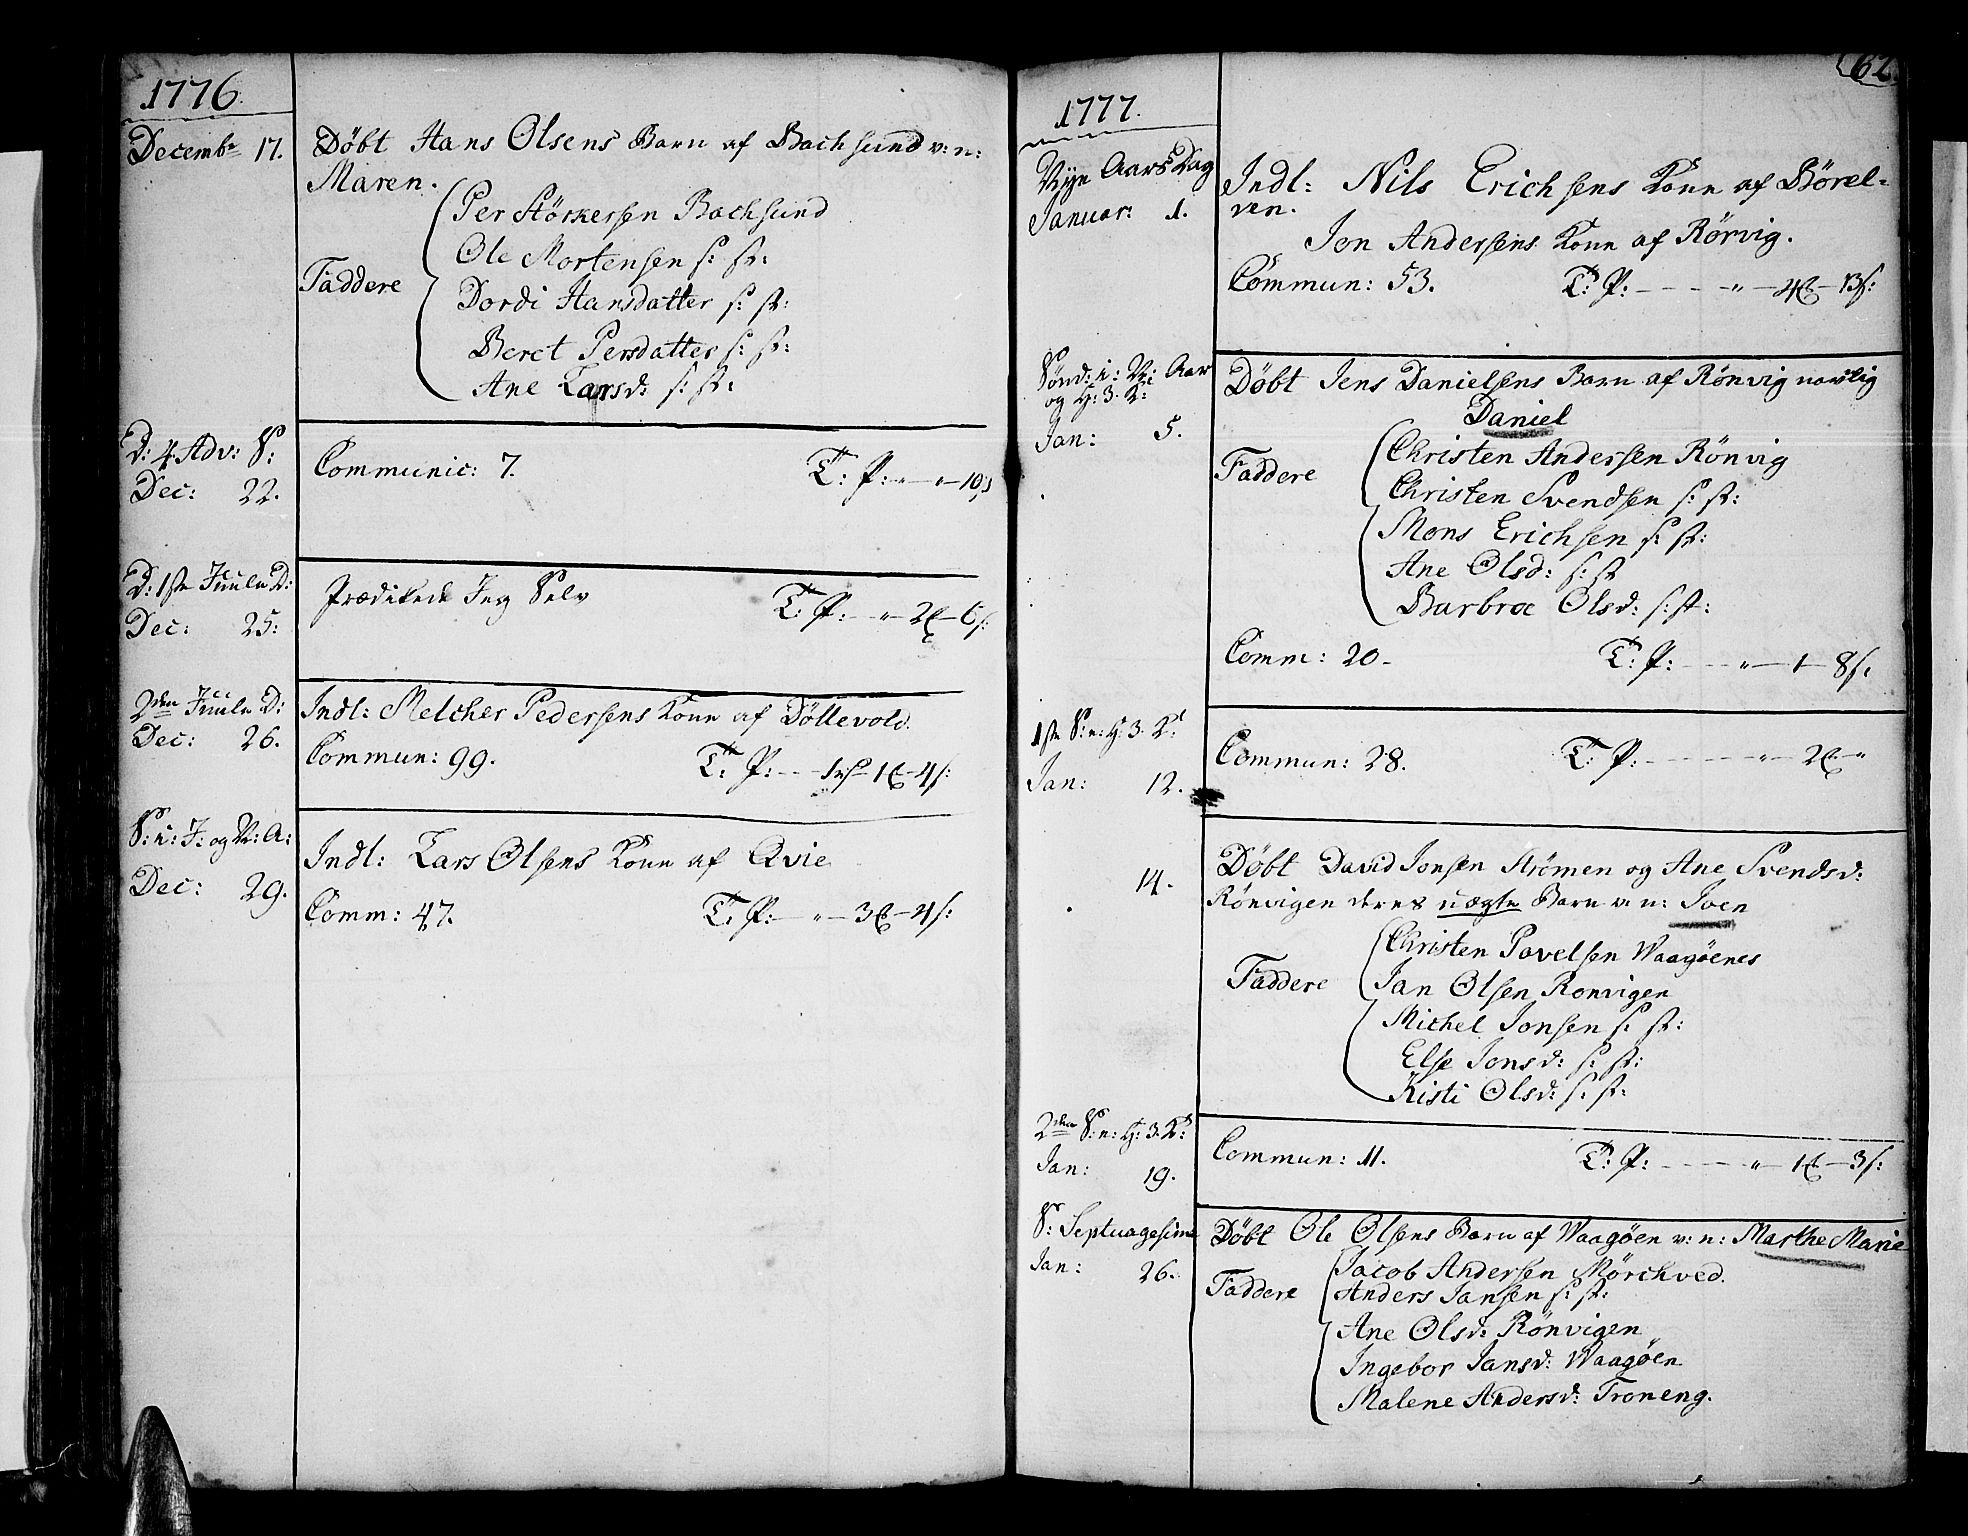 1776.
Decembr 17. Döbt Hans Olsens Barn af Bachsund v: n:
Maren.
Faddere
Per Störkersen Bachsund
Ole Mortensen s: st:
Dordi Hansdatter s: st:
Beret Persdatter s: st:
Ane Larsd: s: st:
D: 4 Adv: S:
Dec: 22.
Communic: 7. T: P: - " - " - 10 s
D: 1ste Juule D:
Dec: 25.
Prædikede Jeg Selv T: P: - " - 2 - 6 s:
2den Juule D:
Dec: 26.
Indl: Melcher Pedersens Kone af Döllevold.
Commun: 99. T: P: - - 1 - 1 - 4 s:
S: i: J: og N: A:
Dec: 29.
Indl: Lars Olsens Kone af Qvie
Comm: 47. T: P: - " - 3 - 4 s:
62.
1777.
Nye Aars Dag
Januar: 1.
Indl: Nils Erichsens Kone af Börel-
ven.
Jon Andersens Kone af Rörvig.
Commun: 53. T: P: - - - " - 4 - 13 s:
Sönd: i: N: Aar
og H: 3. K:
Jan: 5.
Döbt Jens Danielsens Barn af Rönvig navlig
Daniel
Faddere
Christen Andersen Rönvig
Christen Svendsen s: st:
Mons Erichsen s: st:
Ane Olsd: s: st
Barbroe Olsd: s: st:
Comm: 20 - T: P: - - - " - 1 - 8 s:
1ste S: n: H: 3. K:
Jan: 12.
Commun: 28. T: P: - - - " - 2 - "
14.
Döbt David Jonsen Strömen og Ane Svendsd:
Rönvigen deres uægte Barn v: n: Iven
Faddere
Christen Povelsen Waagöenes
Jan Olsen Ronvigen
Michel Jonsen s: st:
Else Jonsd: s: st:
Kisti Olsd: s: st:
2den S: n: H: 3. K:
Jan: 19.
Commun: 11. T: P: - - - " - 1 - 3 s:
S: Septuagesima
Jan: 26.
Döbt Ole Olsens Barn af Waagöen v: n: Marthe Marie
Faddere
Jacob Andersen Mörchved.
Anders Jansen s: st:
Ane Olsd: Rönvigen
Ingebor Jansd: Waagöen
Malene Andersd: Troneng.